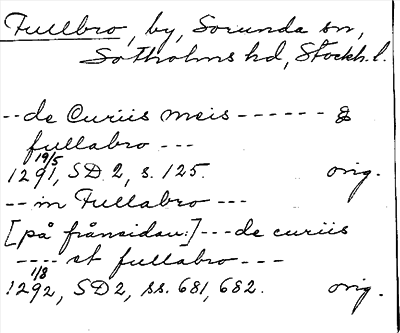 Fullbro, by, Sorunda sn,
Sotholms hd, Stockh. l.
-- de Curiis meis ------ &
fullabro ---
19/5
1291, SD 2, s. 125. orig.
-- in Fullabro ---
[på frånsidan:] --- de curiis
---- et fullabro ---
1/8
1292, SD 2, ss. 681, 682. orig.